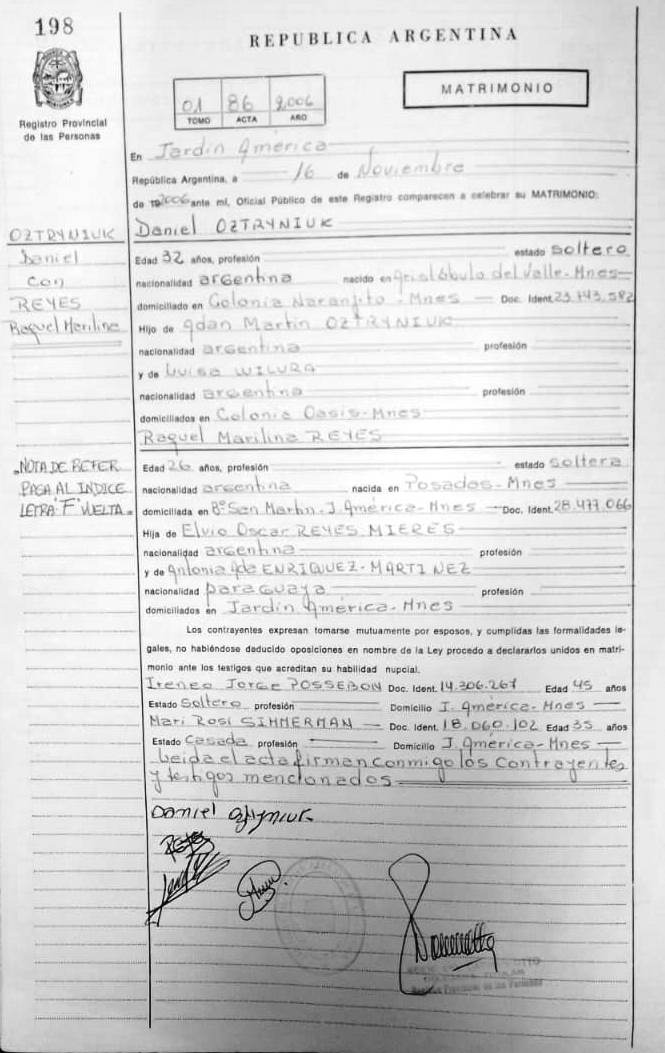 198
REPUBLICA ARGENTINA
Registro Provincial
de las Personas
01 86 2006
TOMO ACTA AÑO
MATRIMONIO
En Jardín América
República Argentina, a 16 de Noviembre
de 2006 ante mí, Oficial Público de este Registro comparecen a celebrar su MATRIMONIO:
OZTRYNIUK
Daniel
con
REYES
Raquel Marilina
Daniel OZTRYNIUK
Edad 32 años, profesión estado soltero
nacionalidad argentina nacido en Aristóbulo del Valle-Mnes
domiciliado en Colonia Naranjito - Mnes Doc. Ident. 23.143.582
Hijo de Adan Martin OZTRYNIUK
nacionalidad argentina profesión
y de Luisa
nacionalidad argentina profesión
domiciliados en Colonia Oasis-Mnes
Raquel Marilina REYES
NOTA DE REFER
PASA AL INDICE
LETRA "F" VUELTA
Edad 26 años, profesión estado soltera
nacionalidad argentina nacida en Posadas-Mnes
domiciliada en Bº San Martin-J. América-Mnes Doc. Ident. 28.477.066
Hija de Elvio Oscar REYES MIERES
nacionalidad argentina profesión
y de Antonia Ada ENRIQUEZ-MARTINEZ
nacionalidad paraguaya profesión
domiciliados en Jardín América-Mnes
Los contrayentes expresan tomarse mutuamente por esposos, y cumplidas las formalidades le-
gales, no habiéndose deducido oposiciones en nombre de la Ley procedo a declararlos unidos en matri-
monio ante los testigos que acreditan su habilidad nupcial.
Ireneo Jorge POSSEBON Doc. Ident. 14.306.267 Edad 45 años
Estado Soltero profesión Domicilio J. América-Mnes
Mari Rosi SIMMERMAN Doc. Ident. 18.060.102 Edad 35 años
Estado Casada profesión Domicilio J. América-Mnes
Leida el acta firman conmigo los contrayentes
y testigos mencionados
Daniel
Reyes